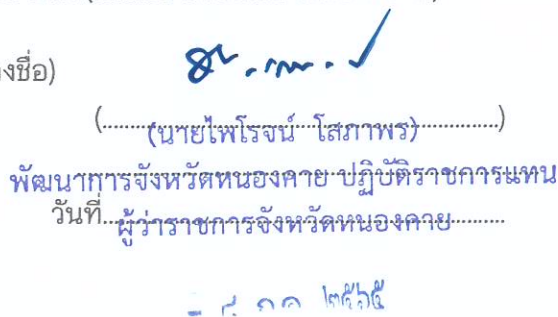 งชื่อ)
(........................................................)
(นายไพโรจน์ โสภาพร)
พัฒนาการจังหวัดหนองคาย ปฏิบัติราชการแทน
วันที่
ผู้ว่าราชการจังหวัดหนองคาย
๒๕๖๕